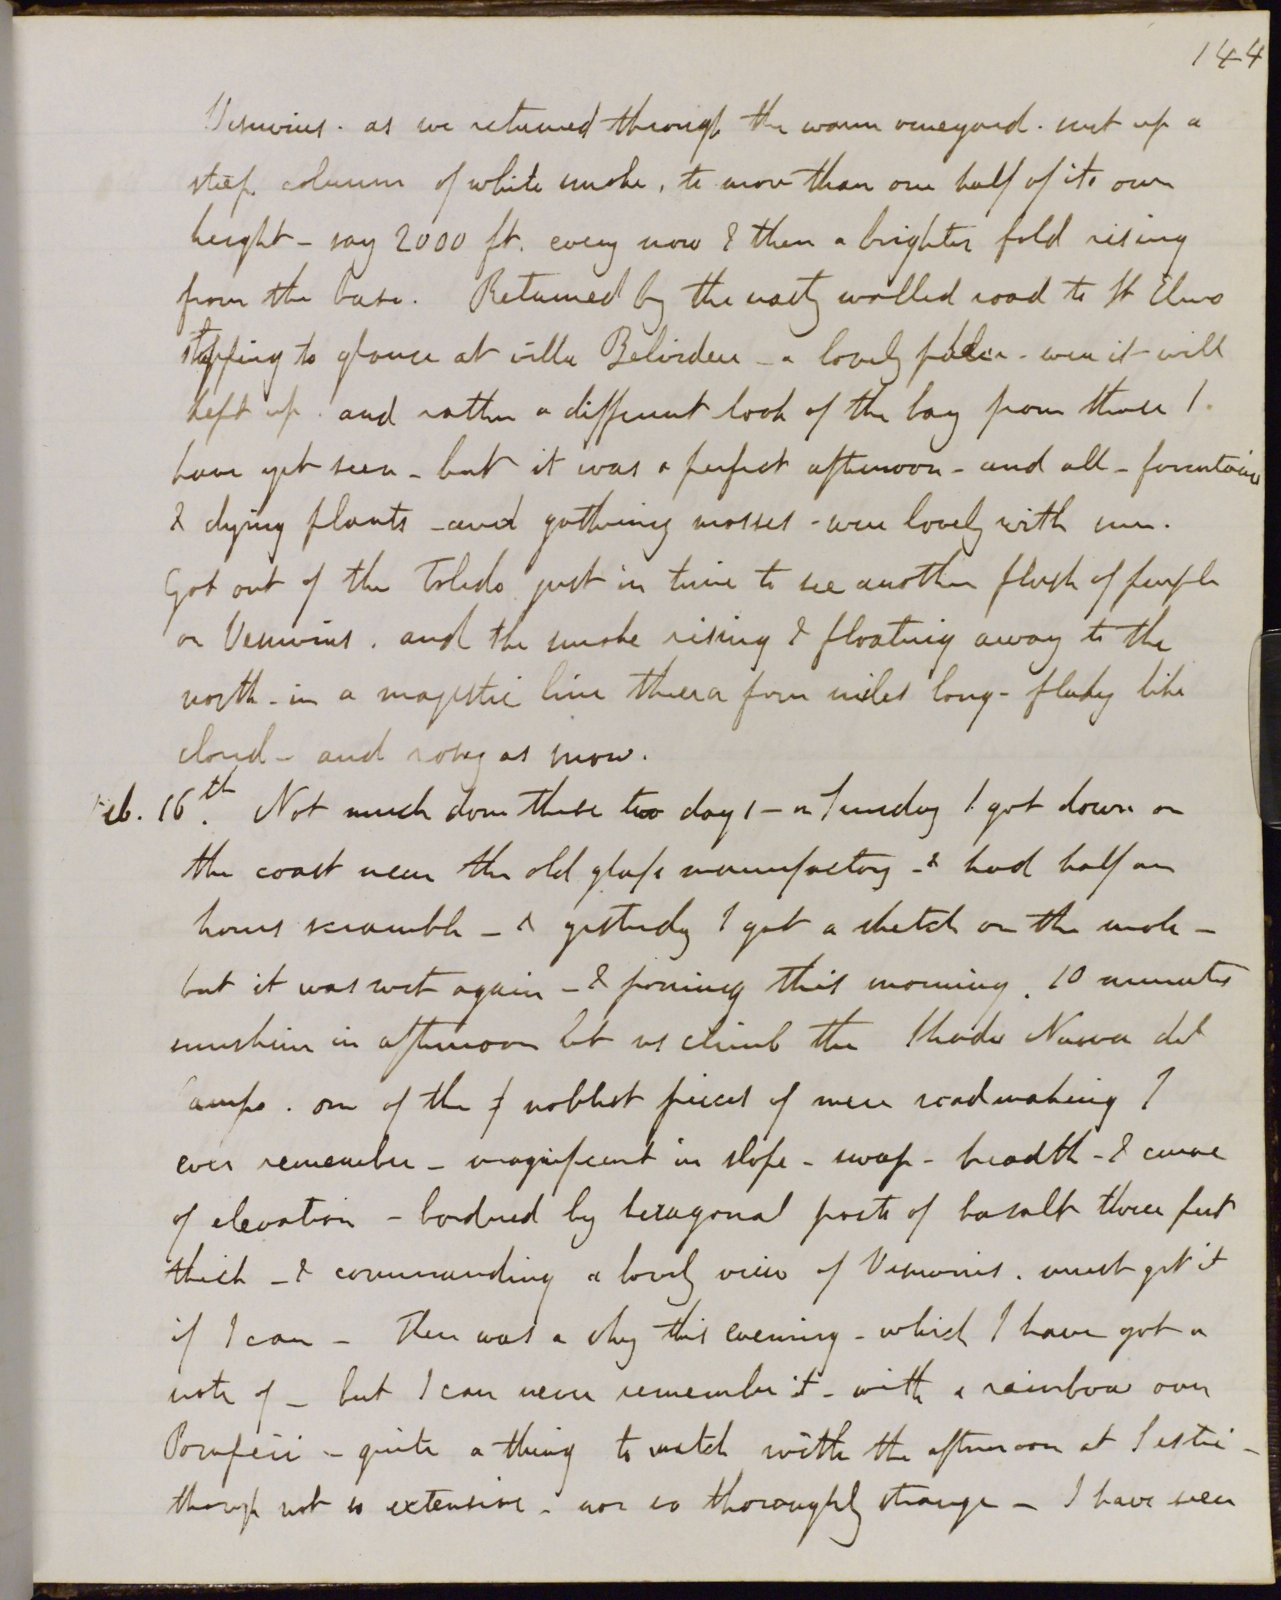 144
Vesuvius. as we returned through the warm vineyard. sent up a
steep column of white smoke, to more than one half of its own
height - say 2000 ft. every now & then a brighter fold rising
from the base. Returned by the nasty walled road to St Elmo
stopping to glance at villa Belvidere - a lovely place - were it well
kept up. and rather a different look of the bay from those I
have yet seen - but it was a perfect afternoon - and all - fountains
& dying plants - and gathering mosses - were lovely with sun.
Got out of the Toledo just in time to see another flush of purple
on Vesuvius. and the smoke rising & floating away to the
north - in a majestic line three or four miles long - flaky like
cloud - and rosy as snow.
Feb. 16th. Not much done these two days - on Sunday I got down on
the coast near the old glass manufactory - & had half an
hours scramble - & yesterday I got a sketch on the mole -
but it was wet again - & pouring this morning. 10 minutes
sunshine in afternoon let us climb the Strada Nuova del
Campo. one of the noblest pieces of mere roadmaking I
ever remember - magnificent in slope - sweep - breadth - & curve
of elevation - bordered by hexagonal posts of basalt three feet
thick - & commanding a lovely view of Vesuvius. must get it
if I can - There was a sky this evening - which I have got a
note of - but I can never remember it - with a rainbow over
Pompeii - quite a thing to match with the afternoon at Sestri -
though not so extensive - nor so thoroughly strange - I have seen